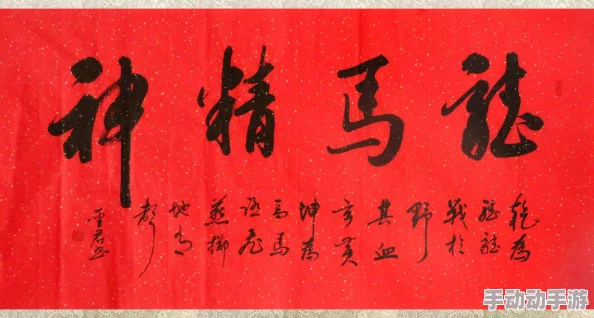 龍馬精神
乾為
龍龍
戰於
野
其血
玄黃
坤為
馬馬
飛
燕擲
地有
聲
手动动手游